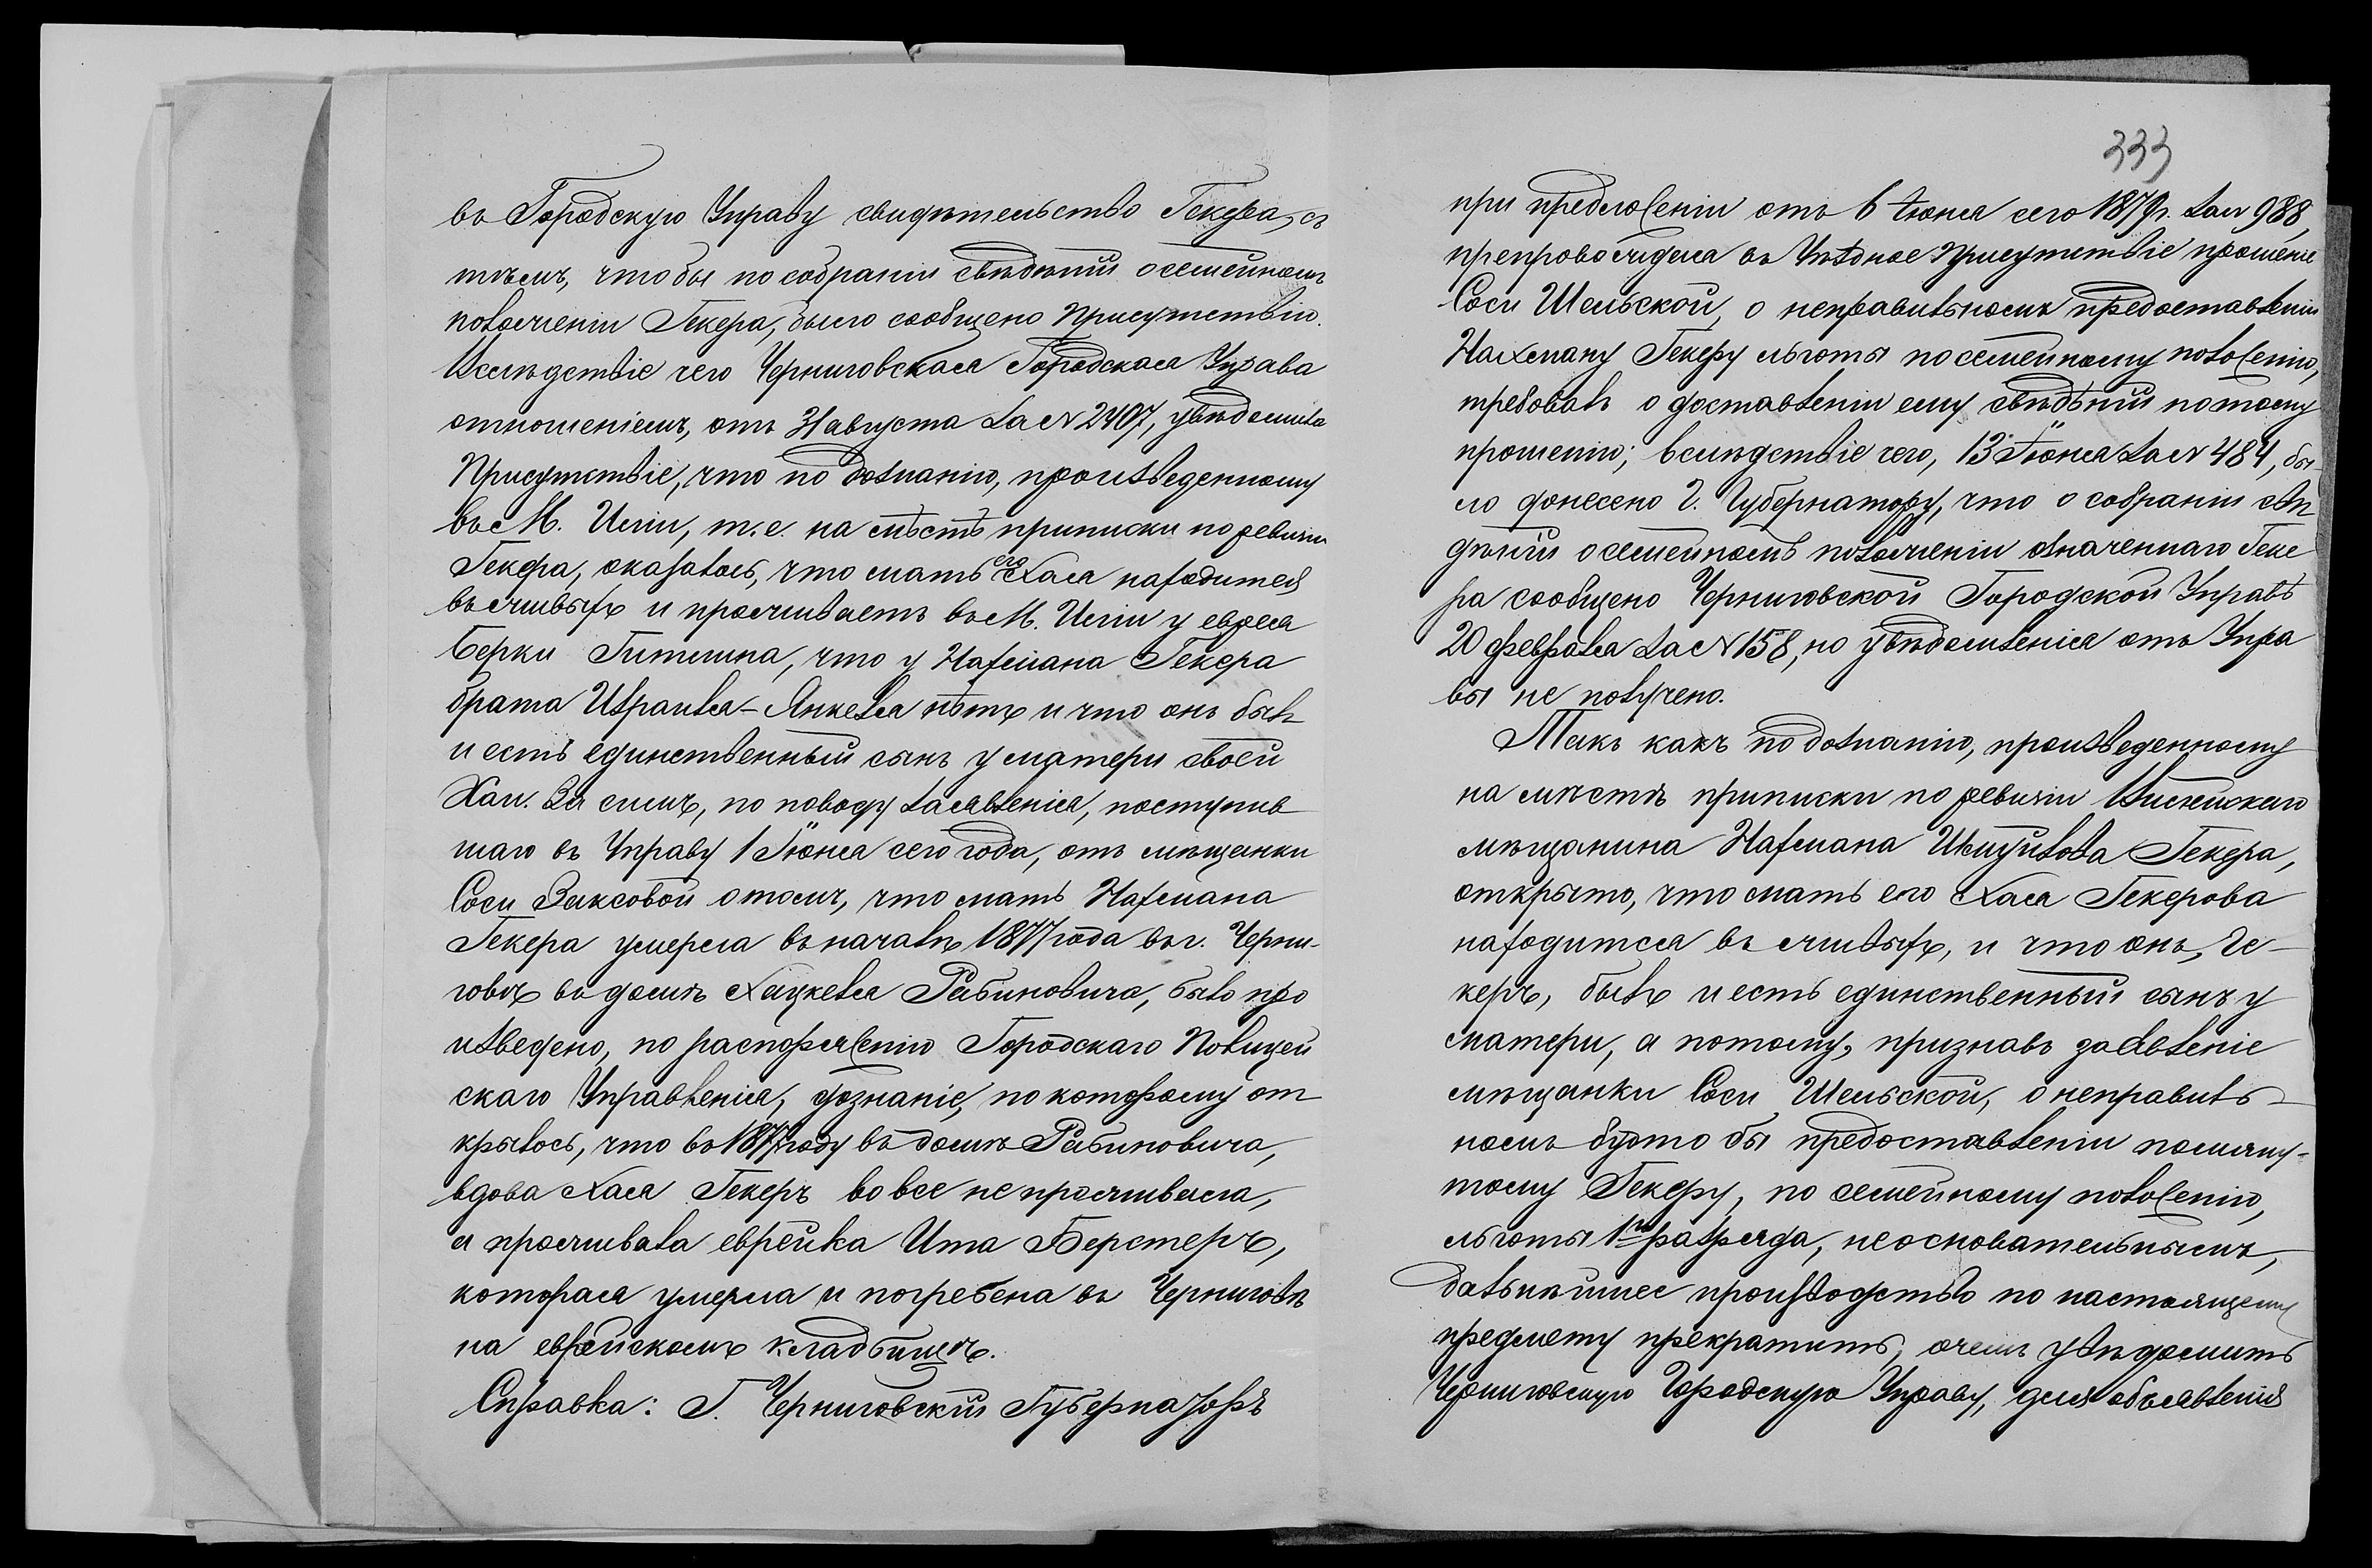 въ Городскую Управу свидѣтельство Гекера, съ
тѣмъ, чтобы по собраніи свѣдѣній о семейномъ
положеніи Гекера, было сообщено Присутствію.
Вслѣдствіе чего Черниговская Городская Управа
отношеніемъ, отъ 31 августа за № 2407, увѣдомила
Присутствіе, что по дознанію, произведенному
въ М. Ичнѣ, т. е. на мѣстѣ приписки по ревизіи
Гекера, оказалось, что мать его Хая находится
въ живыхъ и проживаетъ въ М. Ичнѣ у еврея
Берки Гитмана, что у Нахмана Гекера
брата Израиля-Янкеля нѣтъ и что онъ былъ
и есть единственный сынъ у матери своей
Хаи. За симъ, по поводу заявленія, поступив
шаго въ Управу 1 Іюня сего года, отъ мѣщанки
Соси Заксовой о томъ, что мать Нахмана
Гекера умерла въ началѣ 1877 года въ г. Черни-
говѣ въ домѣ Хацкеля Рабиновича, было про
изведено, по распоряженію Городскаго Полицей
скаго Управленія, дознаніе, по которому от
крылось, что въ 1877 году въ домѣ Рабиновича,
вдова Хая Гекеръ вовсе не проживала,
а проживала еврейка Ита Берстеръ,
которая умерла и погребена въ Черниговѣ
на еврейскомъ кладбищѣ.
Справка: Г. Черниговскій Губернаторъ
333
при предложеніи отъ 6 Іюня сего 1879 г. за № 988,
препровождая въ Уѣздное Присутствіе прошеніе
Соси Шельской, о неправильномъ предоставленіи
Нахману Гекеру льготы по семейному положенію,
требовалъ о доставленіи ему свѣдѣній по тому
прошенію; вслѣдствіе чего, 13 Іюня за № 484, бы
ло донесено Г. Губернатору, что о собраніи свѣ
дѣній о семейномъ положеніи означеннаго Геке
ра сообщено Черниговской Городской Управѣ
20 февраля за № 158, но увѣдомленія отъ Упра
вы не получено.
Такъ какъ по дознанію, произведенному
на мѣстѣ приписки по ревизіи
мѣщанина Нахмана Гекера,
открыто, что мать его Хая Гекерова
находится въ живыхъ, и что онъ, Ге-
керъ, былъ и есть единственный сынъ у
матери, а потому, признавъ заявленіе
мѣщанки Соси Шельской, о неправиль-
номъ будто бы предоставленіи помяну-
тому Гекеру, по семейному положенію,
льготы 1го разряда, неосновательнымъ,
дальнѣйшее производство по настоящему
предмету прекратить, о чемъ увѣдомить
Черниговскую Городскую Управу, для объявленія